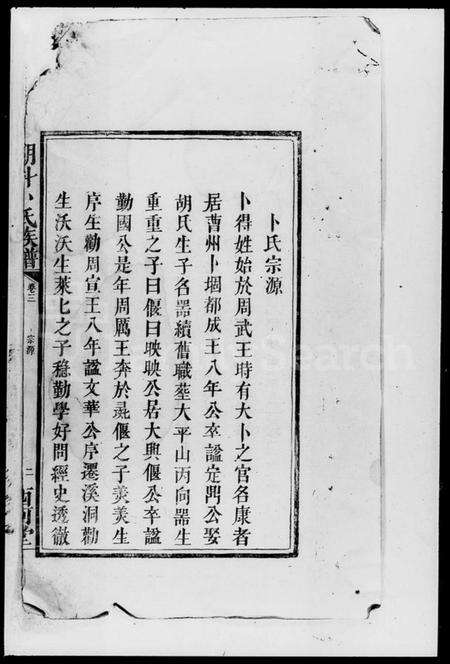 卜氏宗源
卜得姓始於周武王時有大卜之官名康者
居曹州卜堌都成王八年公卒謚定門公娶
胡氏生子名噐續舊職塟大平山丙向噐生
重重之子曰偃曰映映公居大興偃公卒謚
勤國公是年周厲王奔於彘偃之子羙羙生
序生勸周宣王八年謚文華公序遷溪洞勸
生沃沃生萊七之子穏勤學好問經史透徹
卜氏族譜
卷三
宗源
二
西河堂